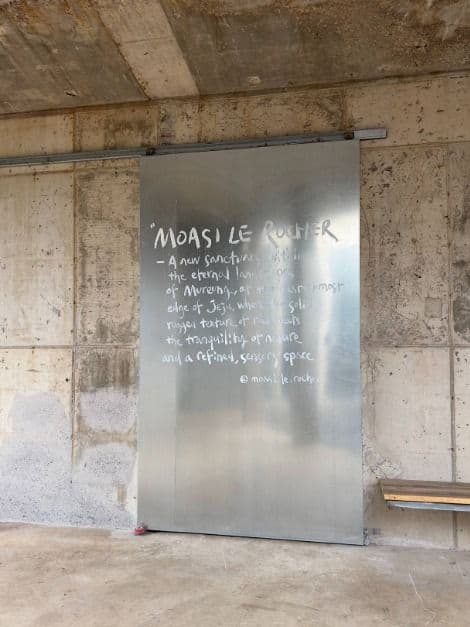 "MOASI LE ROCHER
– A new sanctuary
the eternal landscape
of Mureung, at the most
edge of Jeju, where the solid
rugged texture of meets
the tranquility of nature
and a refined, sensory space
@moasi.le.rocher